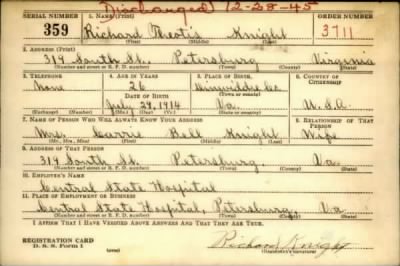 Discharged 12-28-45
SERIAL NUMBER 1. NAME (Print) ORDER NUMBER
359 Richard Theotis Knight 3711
(First) (Middle) (Last)
2. ADDRESS (Print)
319 South St. Petersburg Virginia
(Number and street or R. F. D. number) (Town) (County) (State)
3. TELEPHONE 4. AGE IN YEARS 5. PLACE OF BIRTH 6. COUNTRY OF CITIZENSHIP
None Dinwiddie Co.
DATE OF BIRTH (Town or county)
July 29, 1914 Va. U.S.A.
(Exchange) (Number) (Mo.) (Day) (Yr.) (State or country)
7. NAME OF PERSON WHO WILL ALWAYS KNOW YOUR ADDRESS 8. RELATIONSHIP OF THAT PERSON
Mrs. Carrie Bell Knight Wife
(Mr., Mrs., Miss) (First) (Middle) (Last)
9. ADDRESS OF THAT PERSON
319 South St. Petersburg, Va.
(Number and street or R. F. D. number) (Town) (County) (State)
10. EMPLOYER'S NAME
Central State Hospital
11. PLACE OF EMPLOYMENT OR BUSINESS
Central State Hospital, Petersburg, Va
(Number and street or R. F. D. number) (Town) (County) (State)
I AFFIRM THAT I HAVE VERIFIED ABOVE ANSWERS AND THAT THEY ARE TRUE.
REGISTRATION CARD
D. S. S. Form 1
Richard Knight
(Registrant's signature)